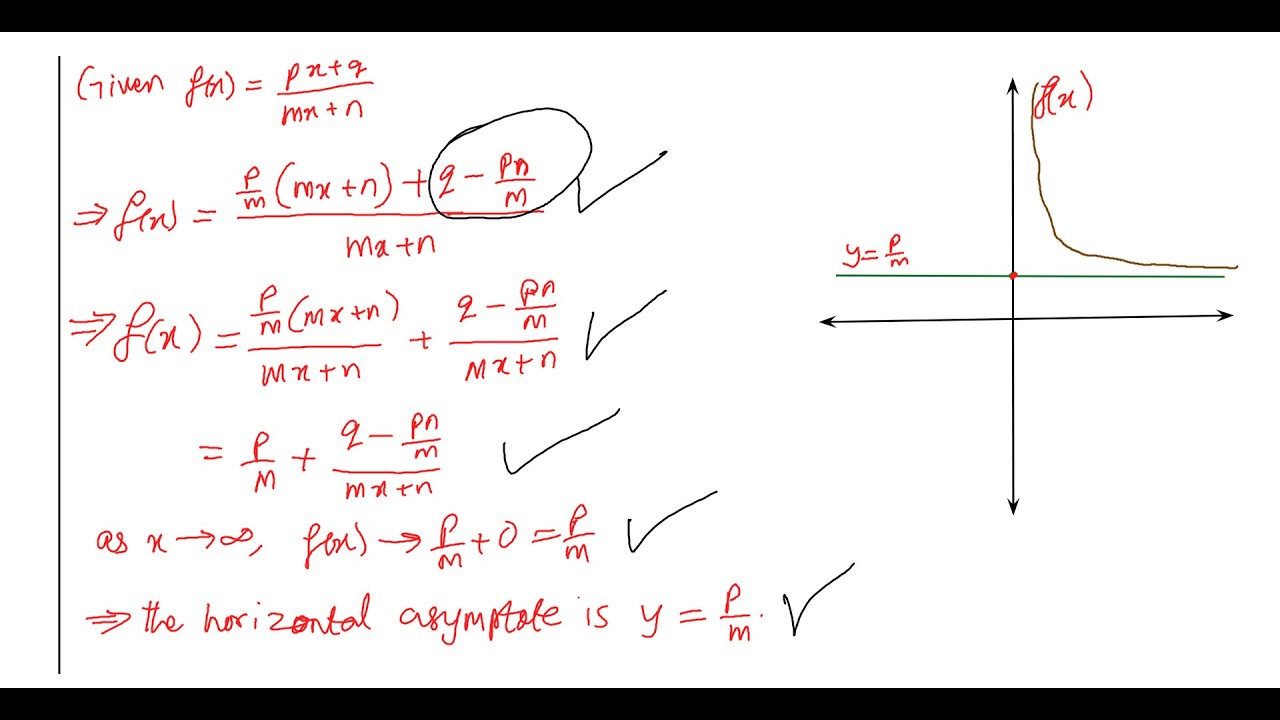 Given f(x) = px+q / mx+n
⇒ f(x) = p/m (mx+n) + q − pn/m / mx+n
⇒ f(x) = p/m (mx+n) / mx+n + q − pn/m / mx+n
= p/m + q − pn/m / mx+n
as x → ∞, f(x) → p/m + 0 = p/m
⇒ the horizontal asymptote is y = p/m.
f(x)
y = p/m